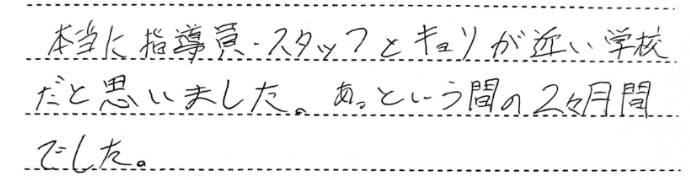 本当に指導員・スタッフとキョリが近い学校
だと思いました。あっという間の2ヶ月間
でした。